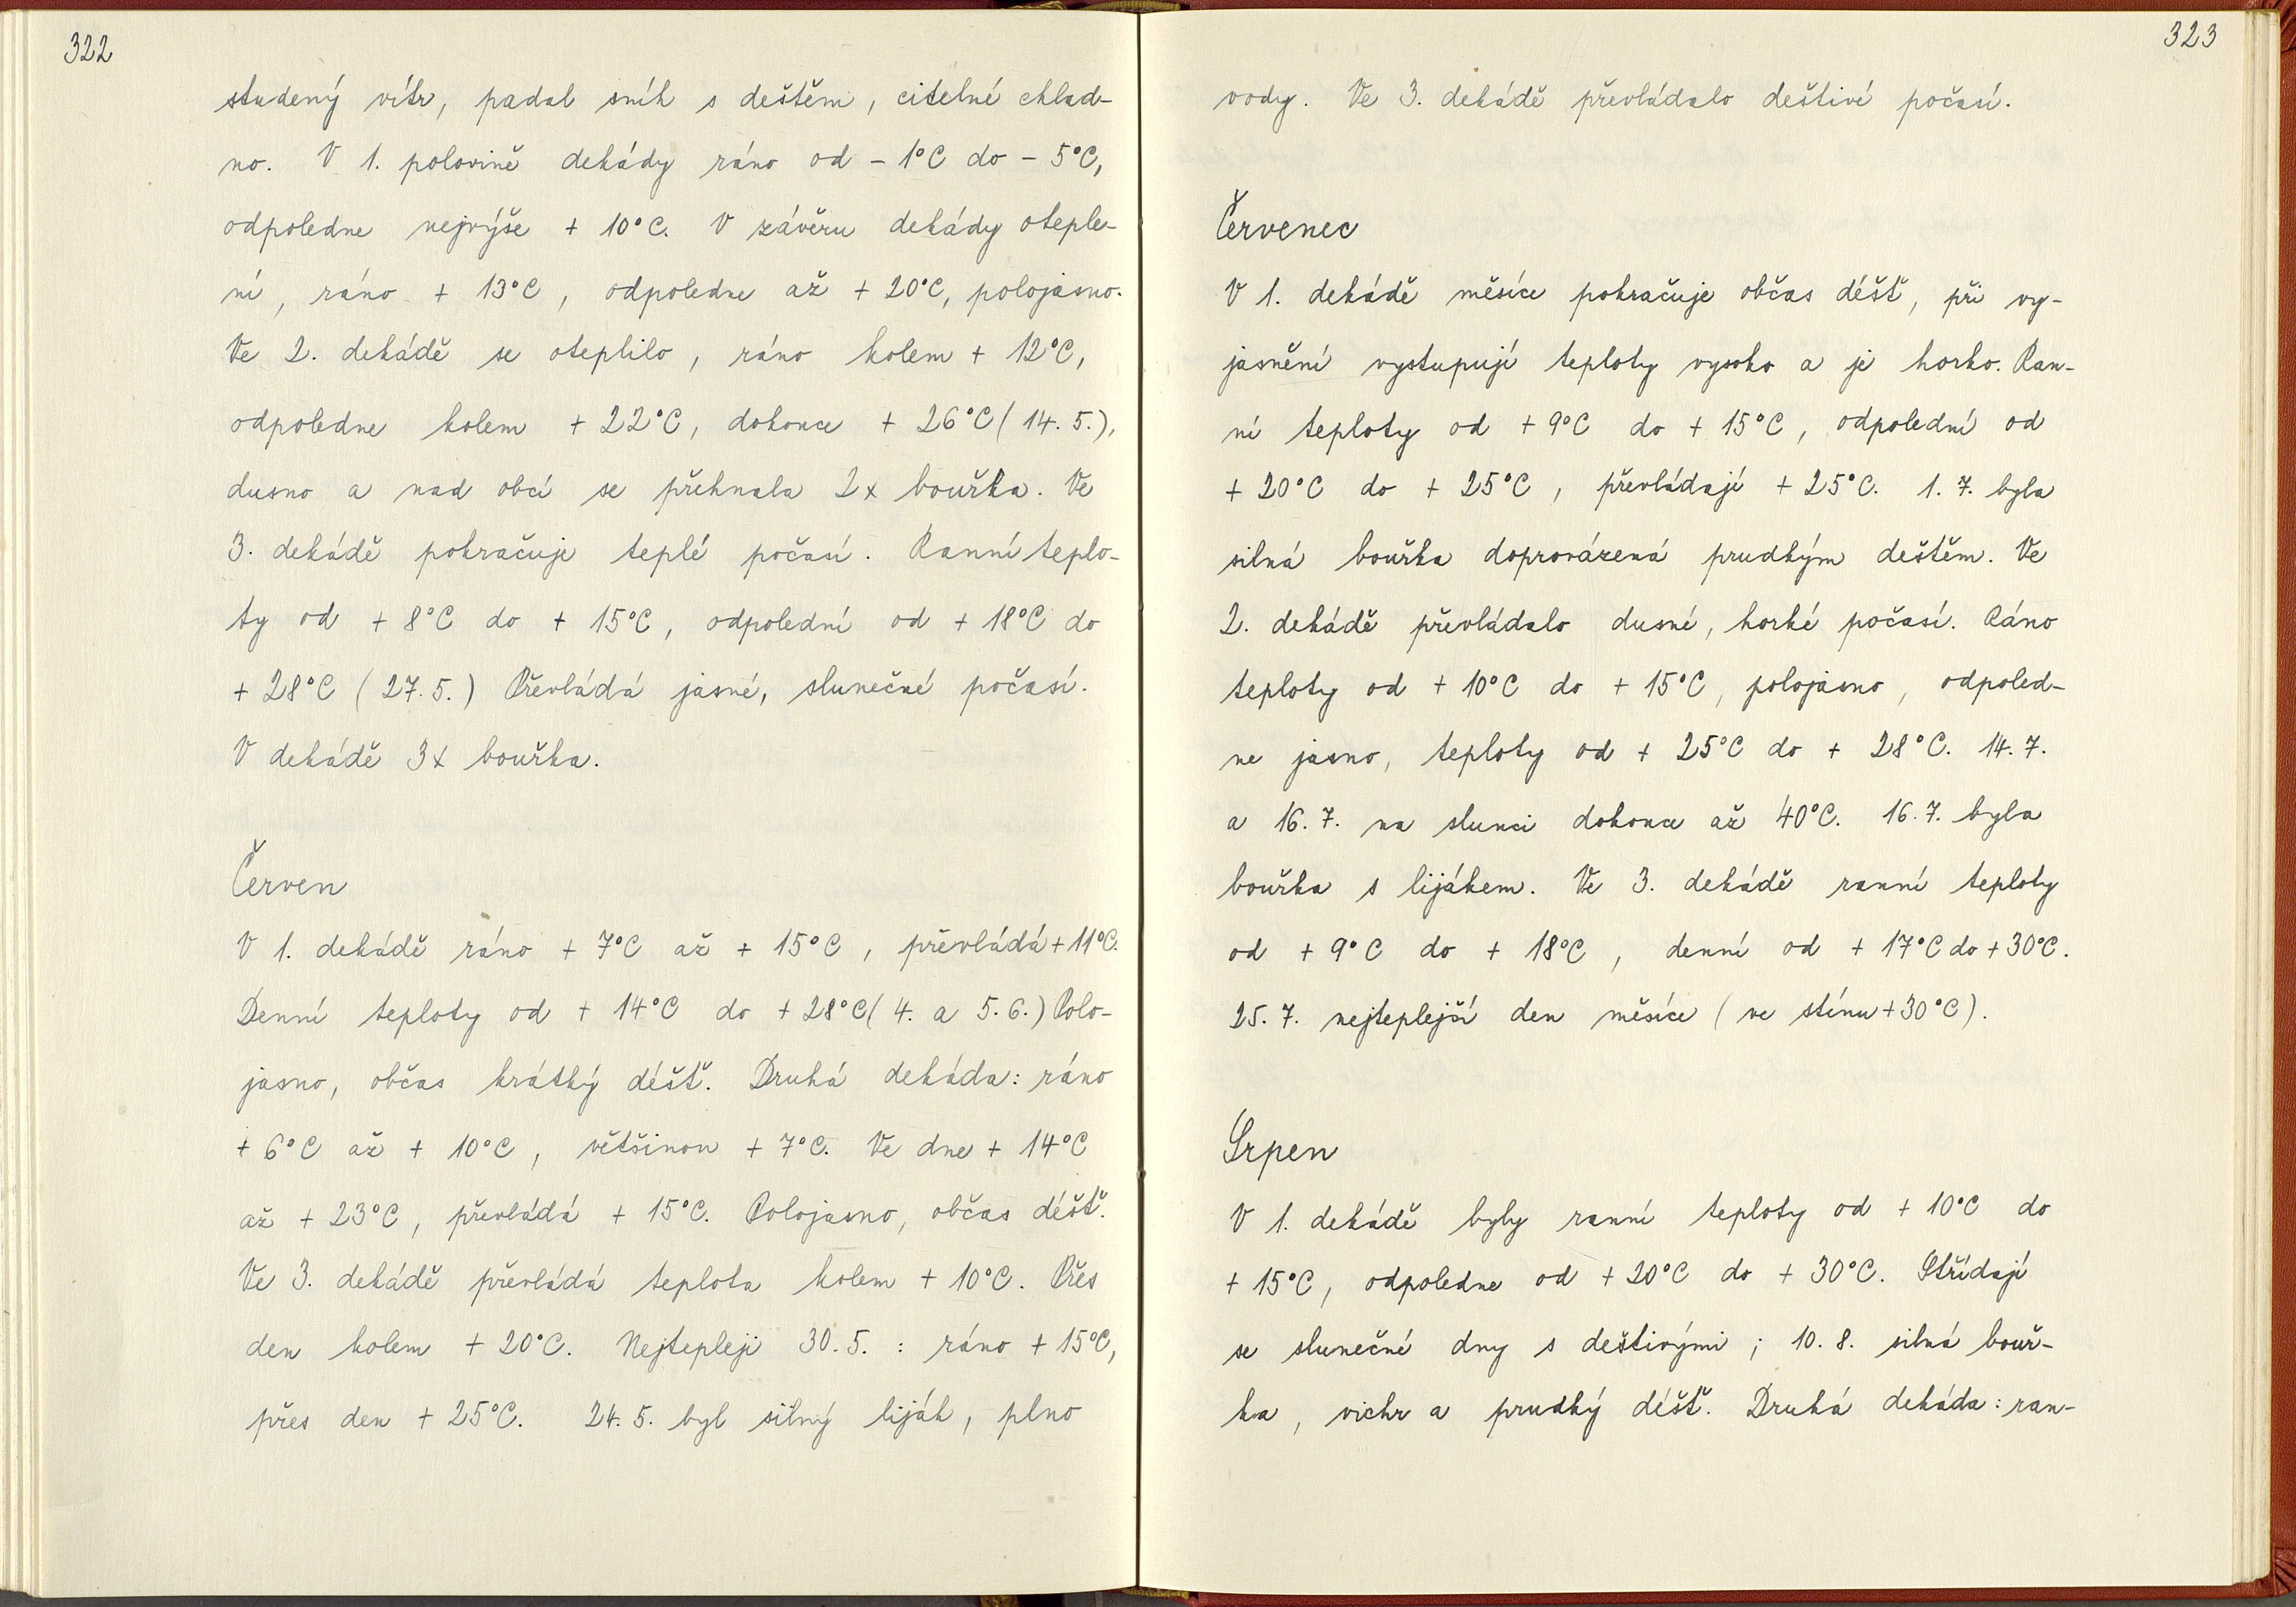 322
studený vítr, padal sníh s deštěm, citelné chlad-
no. V 1. polovině dekády ráno od - 1°C do - 5°C,
odpoledne nejvýše + 10°C. V závěru dekády oteple-
ní, ráno + 13°C, odpoledne až + 20°C, polojasno.
Ve 2. dekádě se oteplilo, ráno kolem + 12°C,
odpoledne kolem + 22°C, dokonce + 26°C (14. 5.),
dusno a nad obcí se přehnala 2x bouřka. Ve
3. dekádě pokračuje teplé počasí. Ranní teplo-
ty od + 8°C do + 15°C, odpolední od + 18°C do
+ 28°C (27. 5.) Převládá jasné, slunečné počasí.
V dekádě 3x bouřka.
Červen
V 1. dekádě ráno + 7°C až + 15°C, převládá + 11°C.
Denní teploty od + 14°C do + 28°C (4. a 5. 6.) Polo-
jasno, občas krátký déšť. Druhá dekáda: ráno
+ 6°C až + 10°C, většinou + 7°C. Ve dne + 14°C
až + 23°C, převládá + 15°C. Polojasno, občas déšť.
Ve 3. dekádě převládá teplota kolem + 10°C. Přes
den kolem + 20°C. Nejtepleji 30. 5. : ráno + 15°C,
přes den + 25°C. 24. 5. byl silný liják, plno
323
vody. Ve 3. dekádě převládalo deštivé počasí.
Červenec
V 1. dekádě měsíce pokračuje občas déšť, při vy-
jasnění vystupují teploty vysoko a je horko. Ran-
ní teploty od + 9°C do + 15°C, odpolední od
+ 20°C do + 25°C, převládají + 25°C. 1. 7. byla
silná bouřka doprovázená prudkým deštěm. Ve
2. dekádě převládalo dusné, horké počasí. Ráno
teploty od + 10°C do + 15°C, polojasno, odpoled-
ne jasno, teploty od + 25°C do + 28°C. 14. 7.
a 16. 7. na slunci dokonce až 40°C. 16. 7. byla
bouřka s lijákem. Ve 3. dekádě ranní teploty
od + 9°C do + 18°C, denní od + 17°C do + 30°C.
25. 7. nejteplejší den měsíce (ve stínu + 30°C).
Srpen
V 1. dekádě byly ranní teploty od + 10°C do
+ 15°C, odpoledne od + 20°C do + 30°C. Střídají
se slunečné dny s deštivými; 10. 8. silná bouř-
ka, vichr a prudký déšť. Druhá dekáda: ran-